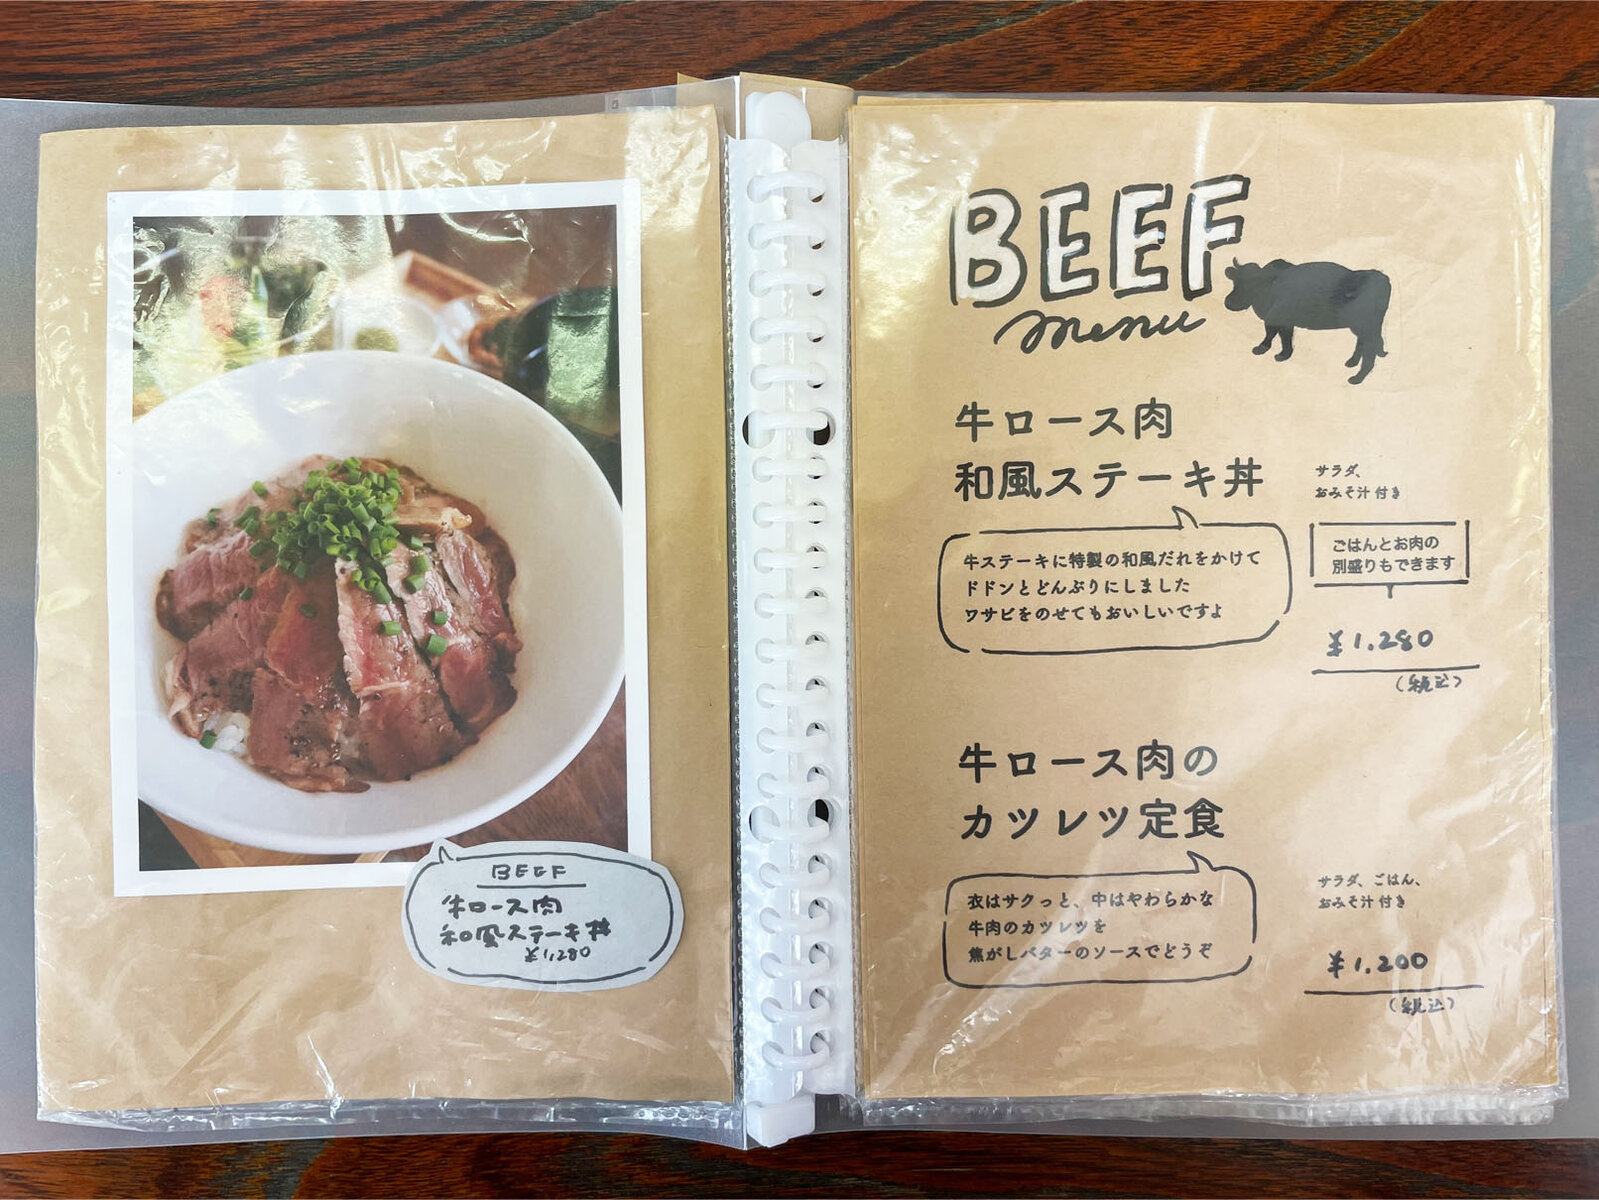 BEEF
牛ロース肉
和風ステーキ丼
¥1,280
BEEF
menu
牛ロース肉
和風ステーキ丼
サラダ、
おみそ汁付き
牛ステーキに特製の和風だれをかけて
ドドンとどんぶりにしました
ワサビをのせてもおいしいですよ
ごはんとお肉の
別盛りもできます
¥1,280
(税込)
牛ロース肉の
カツレツ定食
衣はサクっと、中はやわらかな
牛肉のカツレツを
焦がしバターのソースでどうぞ
サラダ、ごはん、
おみそ汁付き
¥1,200
(税込)